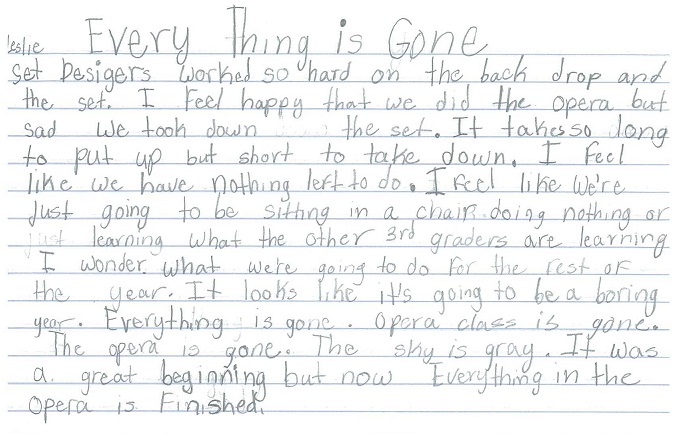 leslie Every Thing is Gone
Set Desigers worked so hard on the back drop and
the set. I feel happy that we did the opera but
sad we took down the set. It takes so long
to put up but short to take down. I feel
like we have nothing left to do. I feel like we're
just going to be sitting in a chair doing nothing or
just learning what the other 3rd graders are learning
I wonder what we're going to do for the rest of
the year. It looks like it's going to be a boring
year. Everything is gone. Opera class is gone.
The opera is gone. The sky is gray. It was
a great beginning but now Everything in the
Opera is Finished.